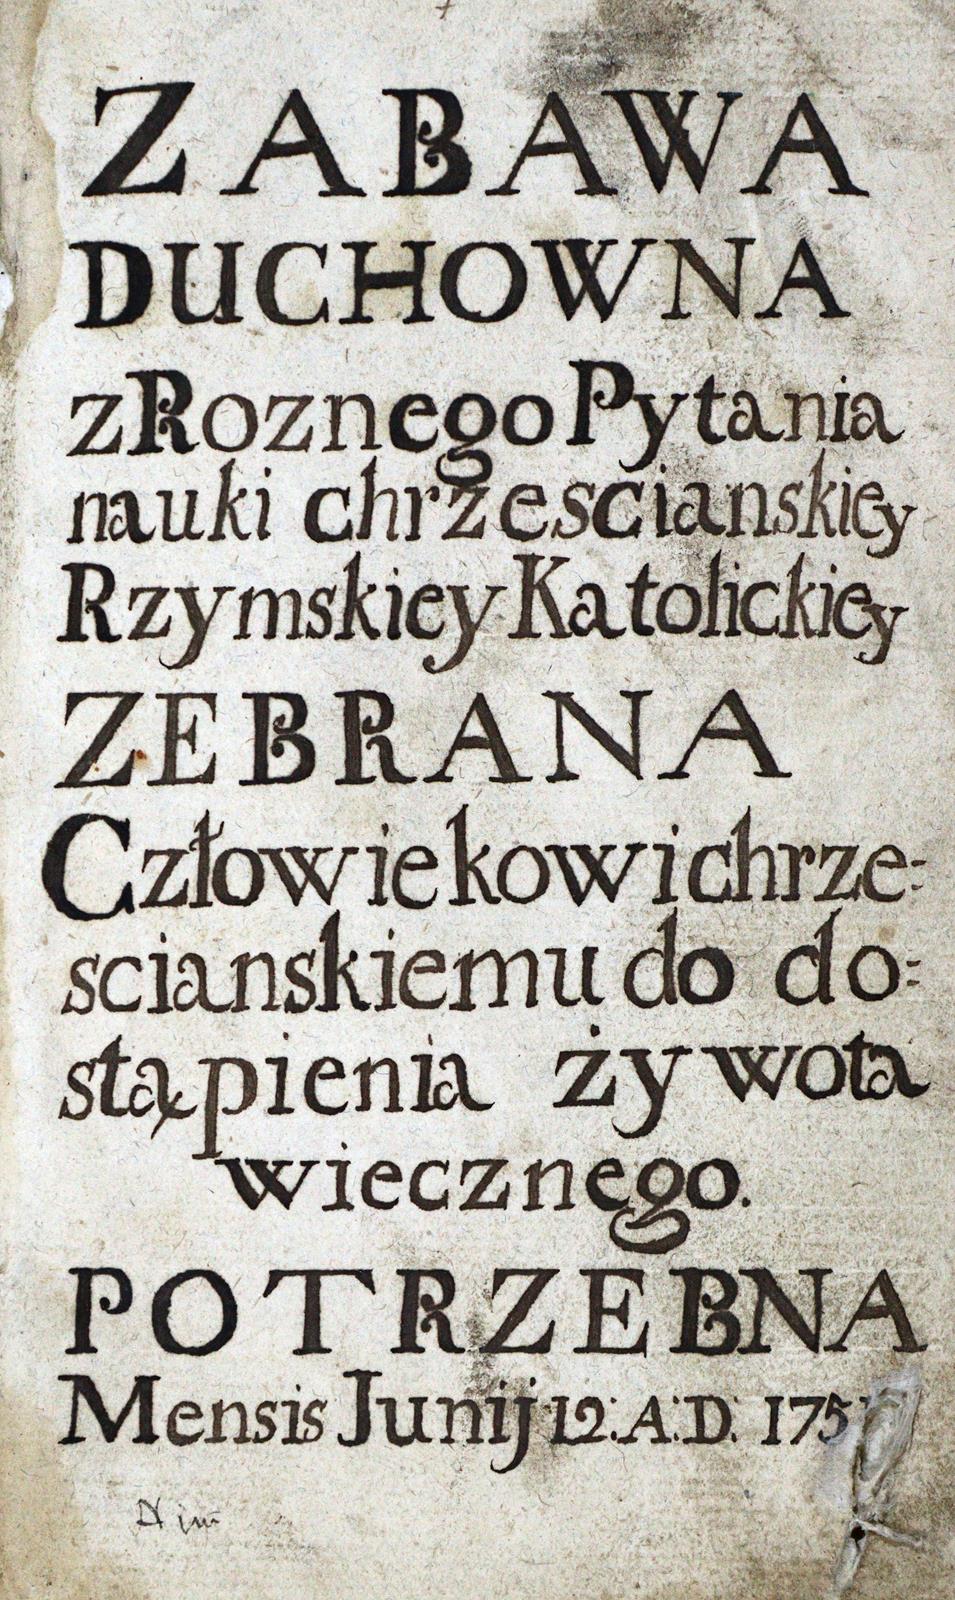 ZABAWA
DUCHOWNA
z Roznego Pytania
nauki chrzescianskiey
Rzymskiey Katolickiey
ZEBRANA
Człowiekowi chrze:
scianskiemu do do:
stąpienia żywota
wiecznego.
POTRZEBNA
Mensis Junij 12: A: D: